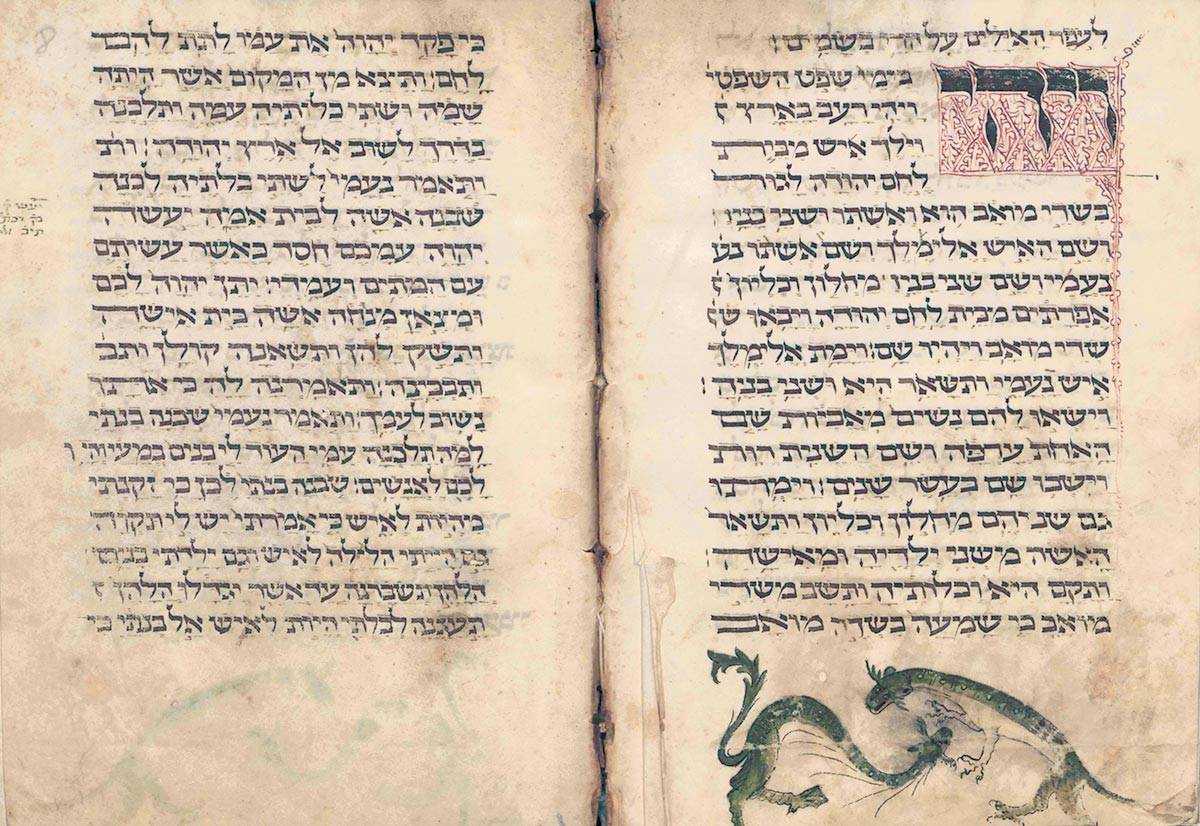 לעפר האילים על הרי בשמים:
ויהי
בימי שפט השפטי
ויהי רעב בארץ
וילך איש מבית
לחם יהודה לגור
בשדי מואב הוא ואשתו ושני בניו
ושם האיש אלימלך ושם אשתו נע
נעמי ושם שני בניו מחלון וכליון
אפרתים מבית לחם יהודה ויבאו ש
שדי מואב ויהיו שם: וימת אלימלך
איש נעמי ותשאר היא ושני בניה:
וישאו להם נשים מאביות שם
האחת ערפה ושם השנית רות
וישבו שם כעשר שנים: וימותו
גם שניהם מחלון וכליון ותשאר
האשה משני ילדיה ומאישה:
ותקם היא וכלותיה ותשב משדי
מואב כי שמעה בשדה מואב
כי פקד יהוה את עמו לתת להם
לחם: ותצא מן המקום אשר היתה
שמה ושתי כלותיה עמה ותלכנה
בדרך לשוב אל ארץ יהודה: ות
ותאמר נעמי לשתי כלתיה לכנה
שבנה אשה לבית אמה יעשה
יהוה עמכם חסד כאשר עשיתם
עם המתים ועמדי: יתן יהוה לכם
ומצאן מנוחה אשה בית אישה
ותשק להן ותשאנה קולן ותב
ותבכינה: ותאמרנה לה כי אתך
נשוב לעמך: ותאמר נעמי שבנה בנתי
למה תלכנה עמי העוד לי בנים במעי והיו
לכם לאנשים: שבנה בנתי לכן כי זקנתי
מהיות לאיש כי אמרתי יש לי תקוה
גם הייתי הלילה לאיש וגם ילדתי בנים:
הלהן תשברנה עד אשר יגדלו הלהן
תעגנה לבלתי היות לאיש אל בנתי כי
8